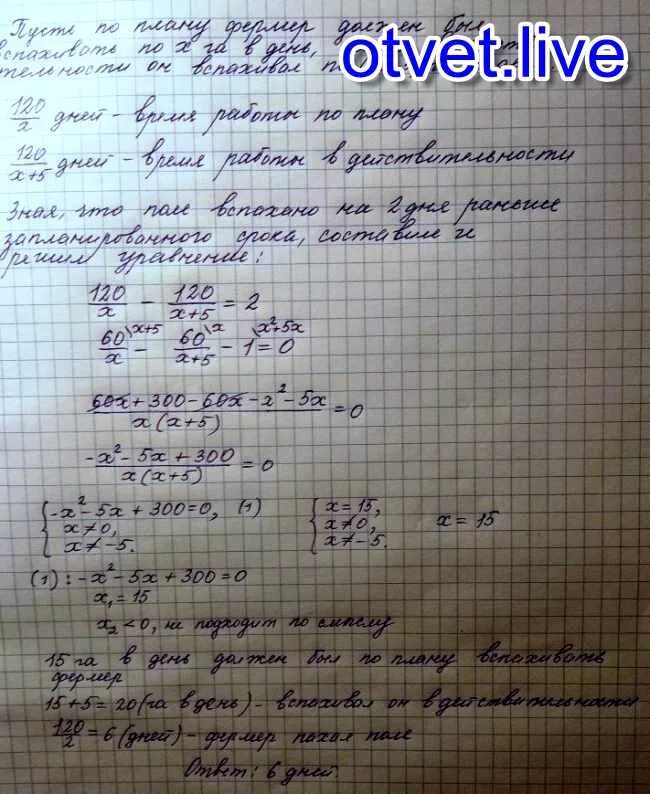 Пусть по плану фермер должен был
вспахивать по x га в день,
тельности он вспахивал
otvet.live
120/x дней - время работы по плану
120/(x+5) дней - время работы в действительности
Зная, что поле вспахано на 2 дня раньше
запланированного срока, составим и
решим уравнение:
120/x - 120/(x+5) = 2
60/x \x+5 - 60/(x+5) \x - 1 \x²+5x = 0
(60x + 300 - 60x - x² - 5x)/(x(x+5)) = 0
(-x² - 5x + 300)/(x(x+5)) = 0
{ -x² - 5x + 300 = 0, (1)
x ≠ 0,
x ≠ -5.
{ x = 15,
x ≠ 0,
x ≠ -5.
x = 15
(1): -x² - 5x + 300 = 0
x₁ = 15
x₂ < 0, не подходит по смыслу
15 га в день должен был по плану вспахивать
фермер
15+5 = 20 (га в день) - вспахивал он в действительности
120/2 = 6 (дней) - фермер пахал поле
Ответ: 6 дней